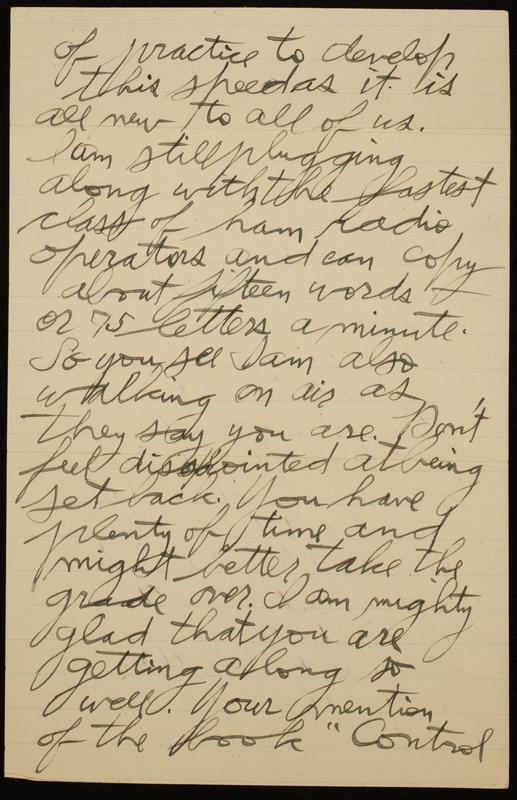 of practice to develop
this speed as it is
all new to all of us.
I am still plugging
along with the fastest
class of ham radio
operators and can copy
about fifteen words
or 75 letters a minute.
So you see I am also
walking on air as
they say you are. Don't
feel disappointed at being
set back. You have
plenty of time and
might better take the
grade over. I am mighty
glad that you are
getting along so
well. Your mention
of the book "Control